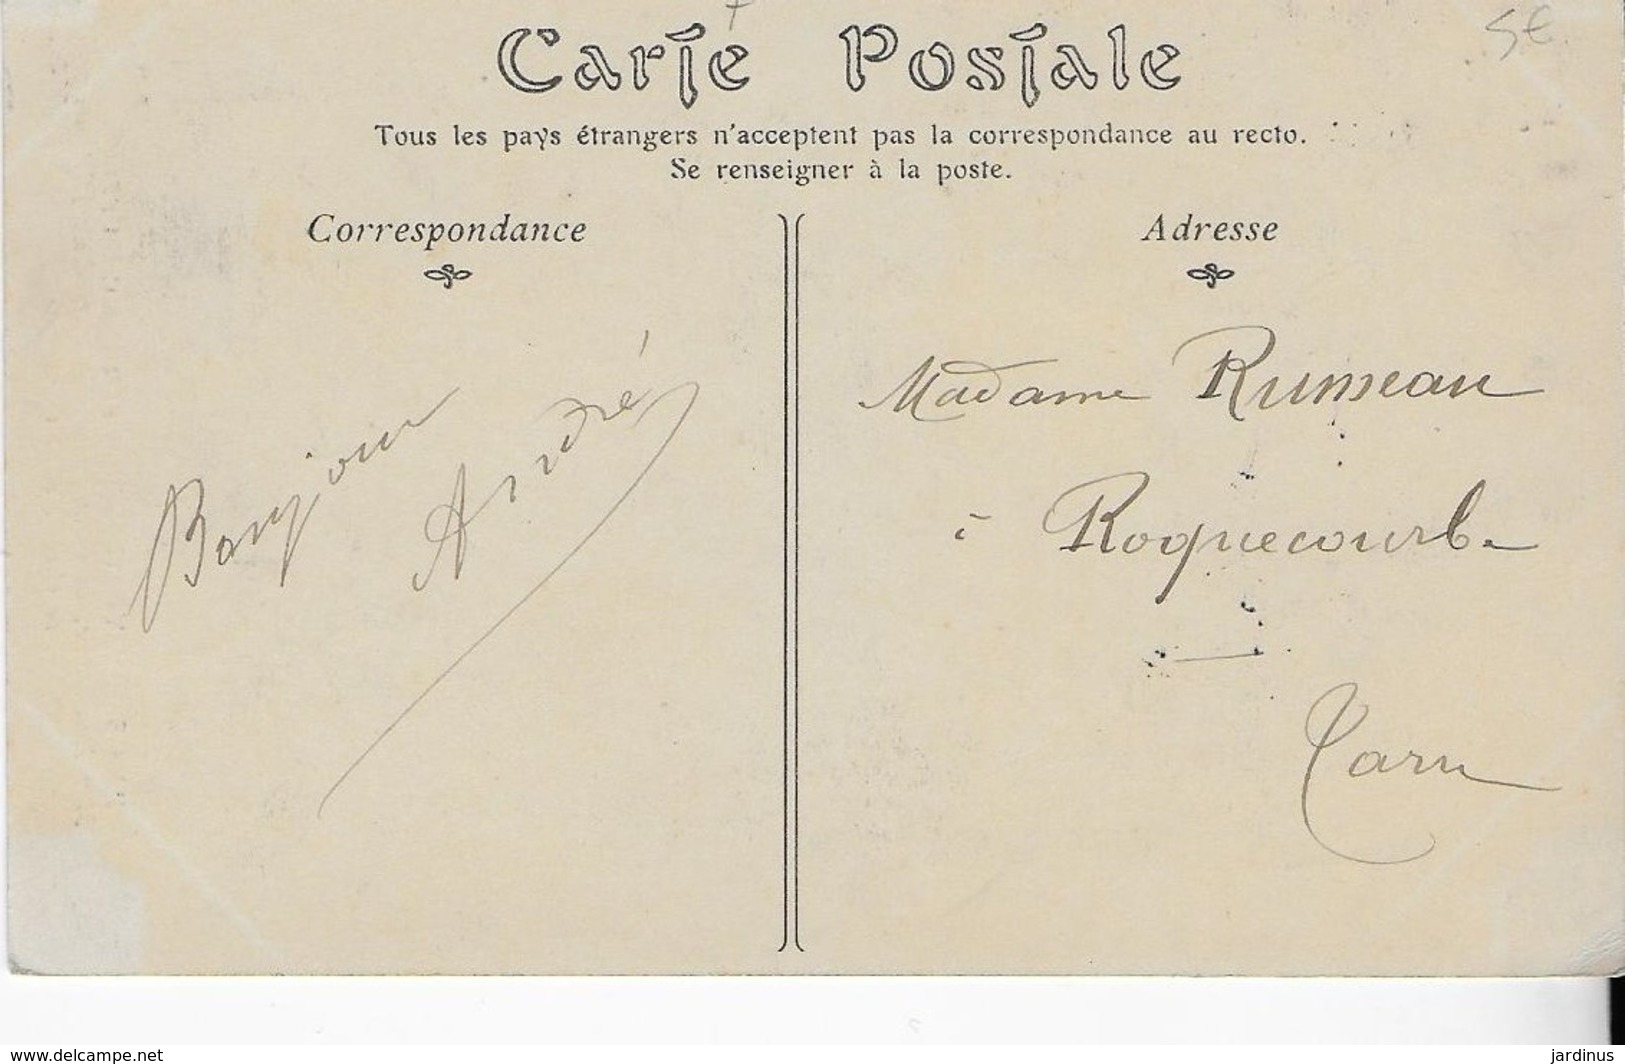 5€
Carte Postale
Tous les pays étrangers n'acceptent pas la correspondance au recto.
Se renseigner à la poste.
Correspondance
Bonjour
André
Adresse
Madame Rumeau
à Roquecourbe
Tarn
www.delcampe.net
jardinus